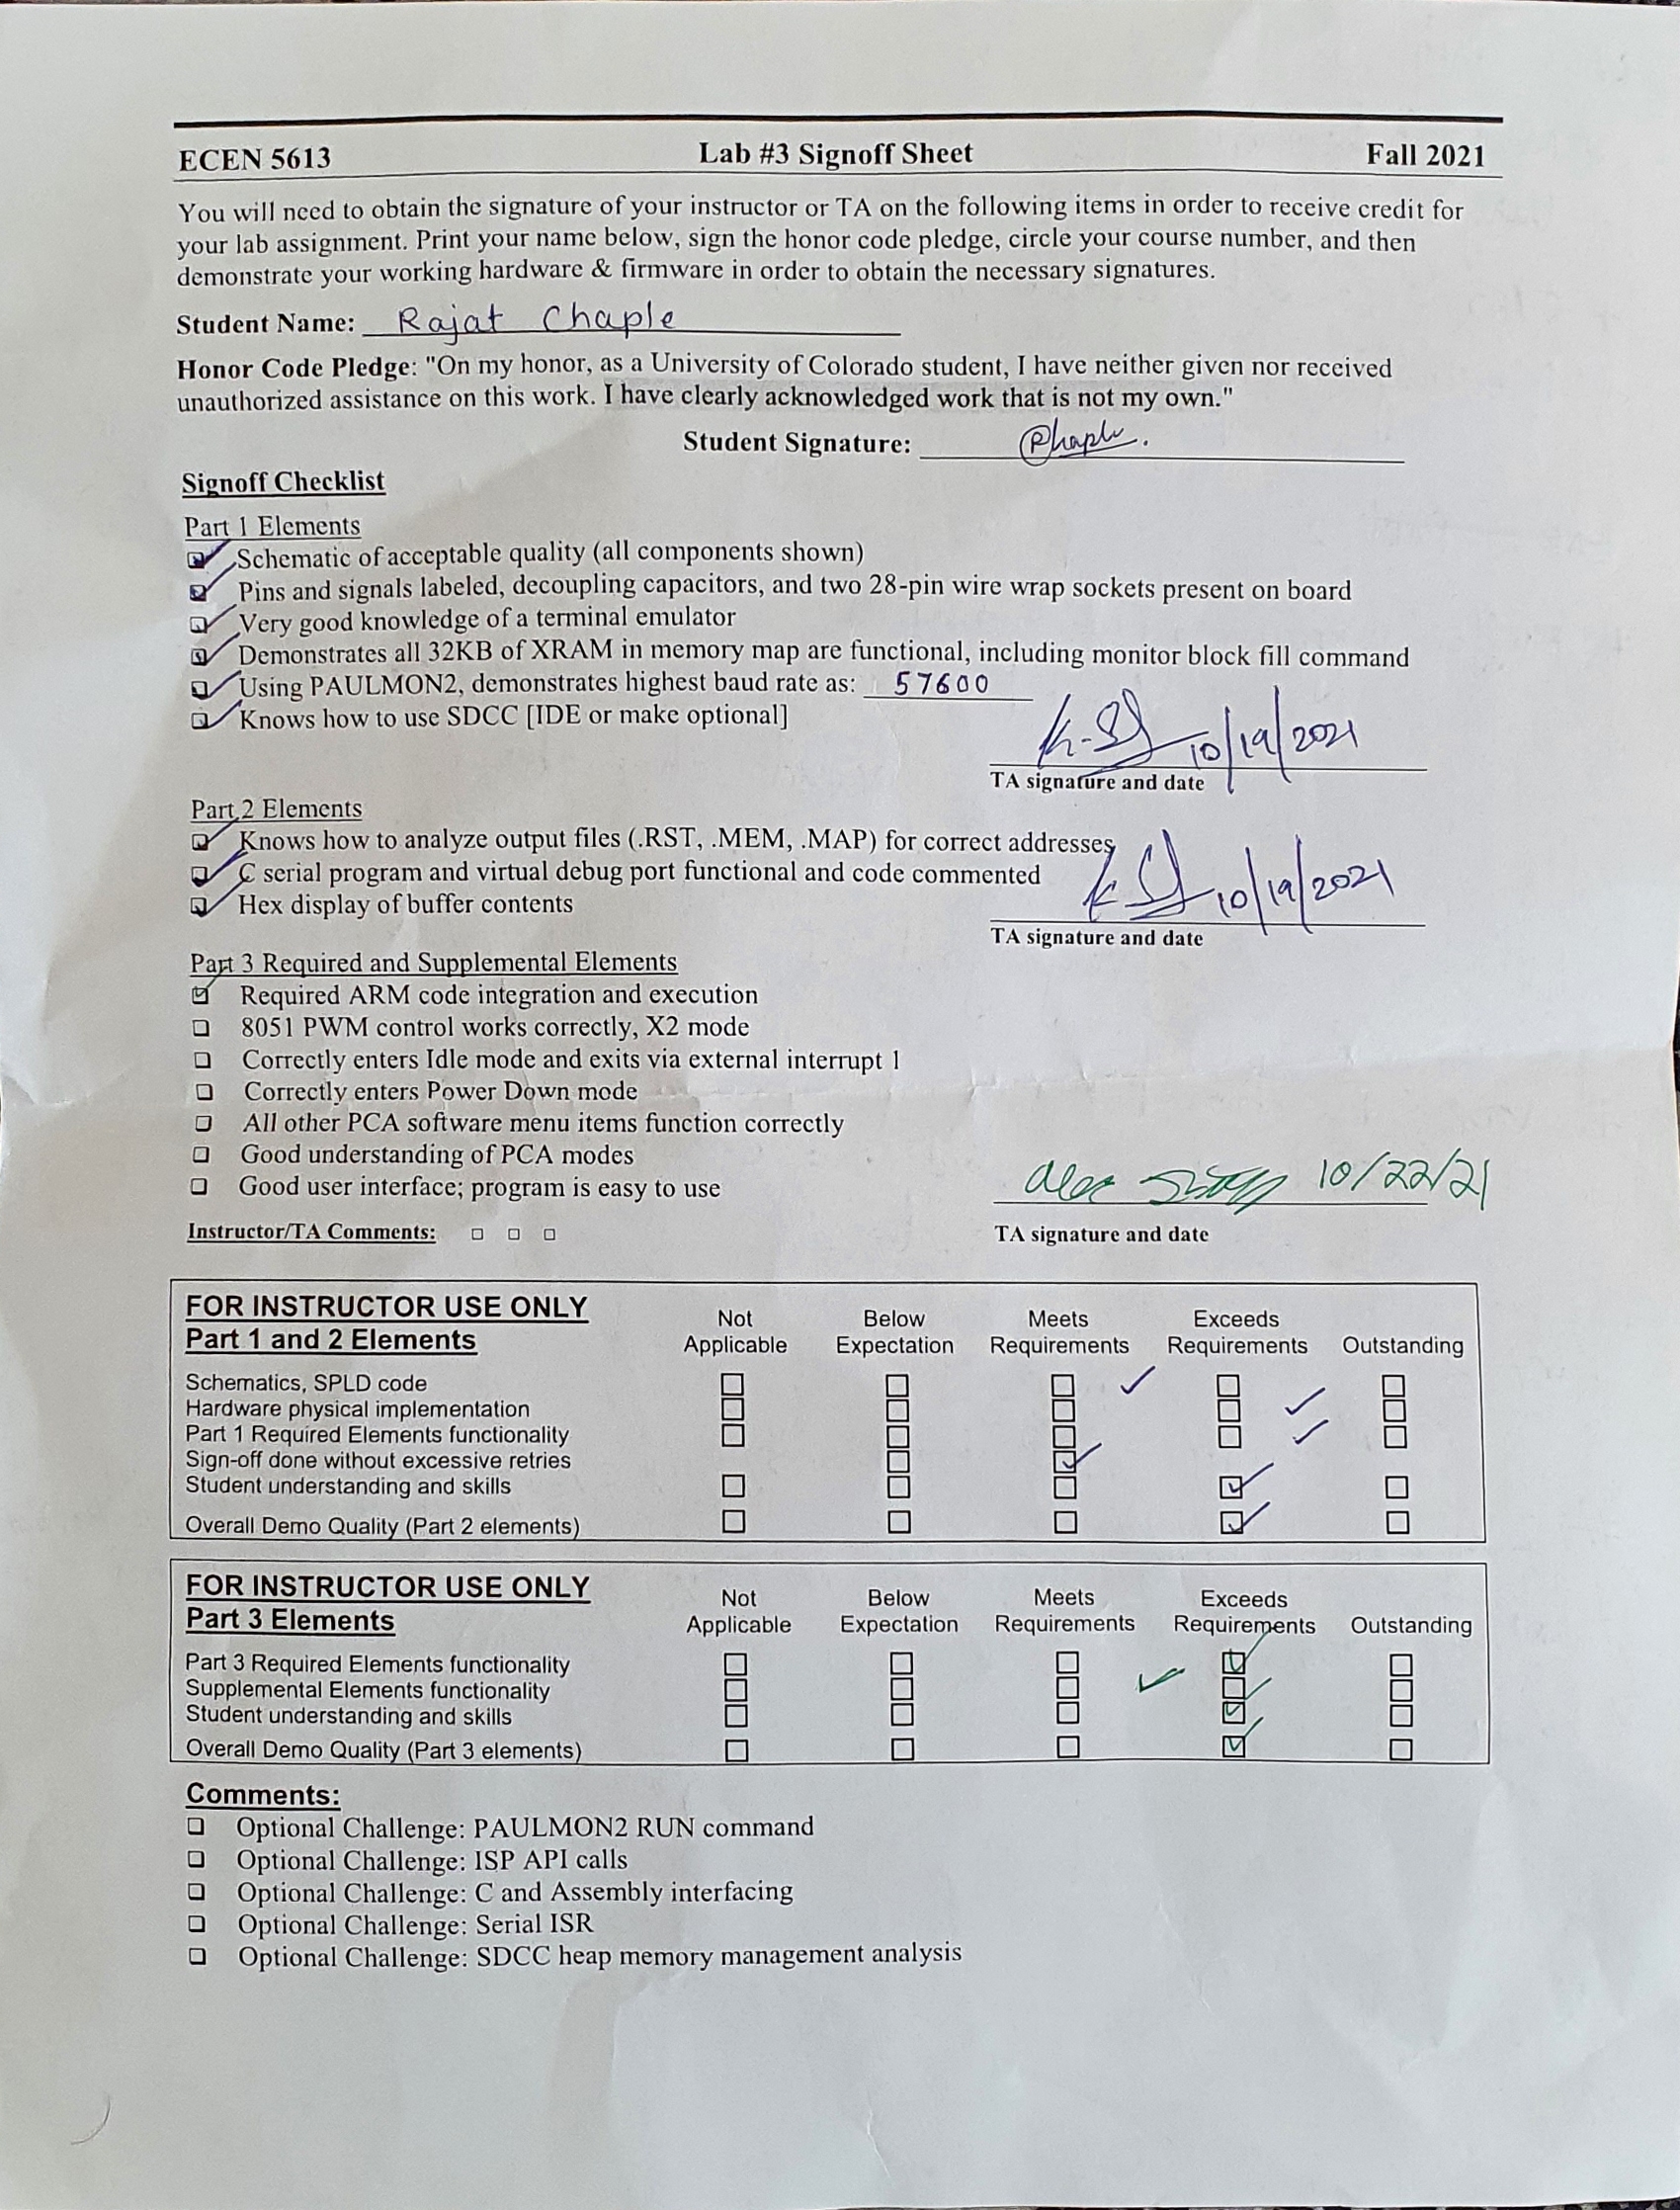 ECEN 5613 Lab #3 Signoff Sheet Fall 2021
You will need to obtain the signature of your instructor or TA on the following items in order to receive credit for
your lab assignment. Print your name below, sign the honor code pledge, circle your course number, and then
demonstrate your working hardware & firmware in order to obtain the necessary signatures.
Student Name: Rajat Chaple
Honor Code Pledge: "On my honor, as a University of Colorado student, I have neither given nor received
unauthorized assistance on this work. I have clearly acknowledged work that is not my own."
Student Signature:
Signoff Checklist
Part 1 Elements
Schematic of acceptable quality (all components shown)
Pins and signals labeled, decoupling capacitors, and two 28-pin wire wrap sockets present on board
Very good knowledge of a terminal emulator
Demonstrates all 32KB of XRAM in memory map are functional, including monitor block fill command
Using PAULMON2, demonstrates highest baud rate as: 57600
Knows how to use SDCC [IDE or make optional]
10/19/2021
TA signature and date
Part 2 Elements
Knows how to analyze output files (.RST, .MEM, .MAP) for correct addresses
C serial program and virtual debug port functional and code commented
Hex display of buffer contents
10/19/2021
TA signature and date
Part 3 Required and Supplemental Elements
Required ARM code integration and execution
8051 PWM control works correctly, X2 mode
Correctly enters Idle mode and exits via external interrupt 1
Correctly enters Power Down mode
All other PCA software menu items function correctly
Good understanding of PCA modes
Good user interface; program is easy to use
10/22/21
Instructor/TA Comments:
TA signature and date
FOR INSTRUCTOR USE ONLY
Part 1 and 2 Elements
Not Applicable Below Expectation Meets Requirements Exceeds Requirements Outstanding
Schematics, SPLD code
Hardware physical implementation
Part 1 Required Elements functionality
Sign-off done without excessive retries
Student understanding and skills
Overall Demo Quality (Part 2 elements)
FOR INSTRUCTOR USE ONLY
Part 3 Elements
Not Applicable Below Expectation Meets Requirements Exceeds Requirements Outstanding
Part 3 Required Elements functionality
Supplemental Elements functionality
Student understanding and skills
Overall Demo Quality (Part 3 elements)
Comments:
Optional Challenge: PAULMON2 RUN command
Optional Challenge: ISP API calls
Optional Challenge: C and Assembly interfacing
Optional Challenge: Serial ISR
Optional Challenge: SDCC heap memory management analysis